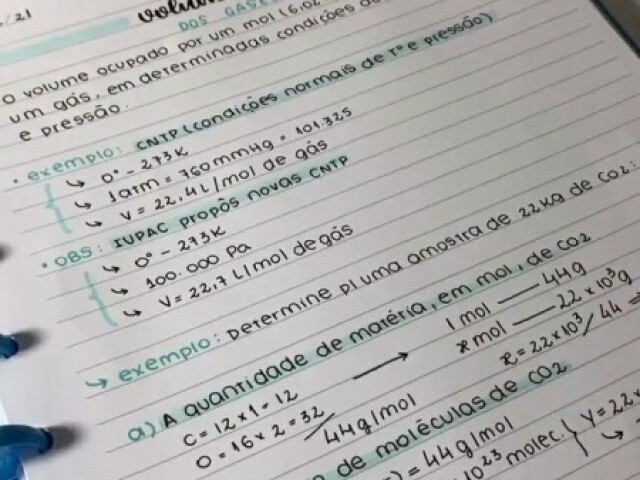 /21
DOS GASES
O volume ocupado por um mol (6,02
um gás, em determinadas condições de
e pressão.
• exemplo: CNTP (condições normais de Tº e pressão)
↳ 0° - 273K
↳ 1atm = 760mmHg = 101.325
↳ V = 22,4L/mol de gás
• OBS: IUPAC propôs novas CNTP
↳ 0° - 273K
↳ 100.000 Pa
↳ V = 22,7 L/mol de gás
↳ exemplo: Determine p/ uma amostra de 22kg de CO2:
a) A quantidade de matéria, em mol, de CO2
C = 12 x 1 = 12
O = 16 x 2 = 32
44g/mol
→ 1 mol — 44g
x mol — 22x10³g
x = 22x10³/44 =
de moléculas de CO2
) = 44g/mol
10²³ molec.
{ y = 22x